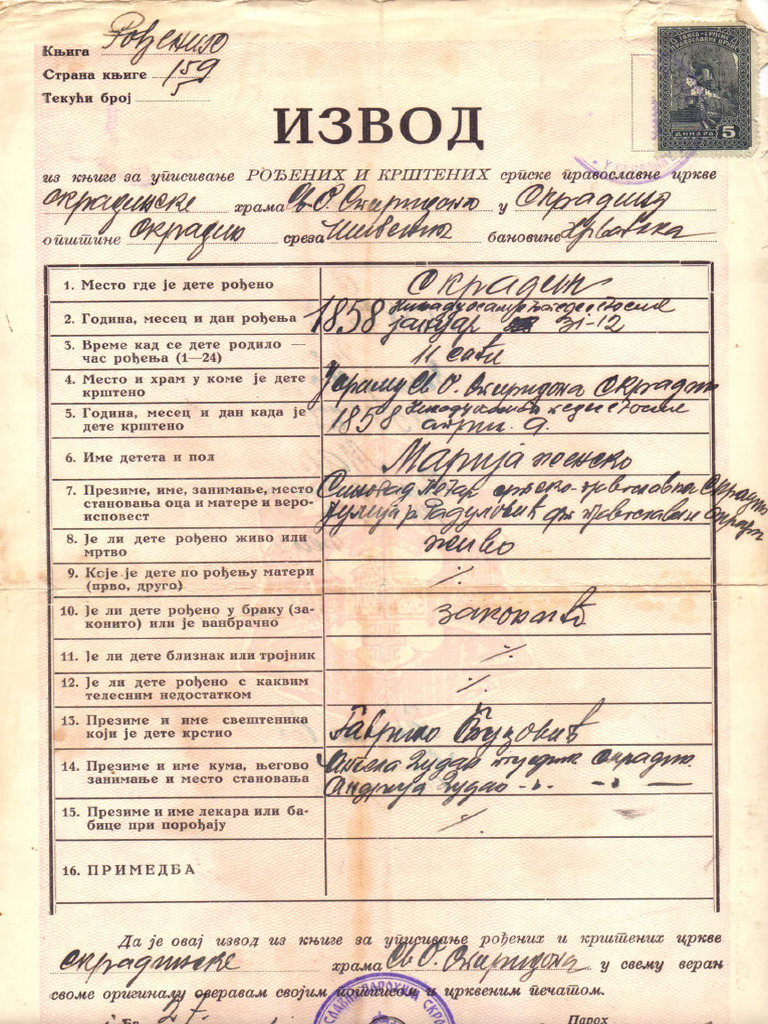 Књига Рођених
Страна књиге 159
Текући број 5
ТАКСА СРПСКЕ
ПРАВОСЛАВНЕ ЦРКВЕ
ДИНАРА 5
ИЗВОД
из књиге за уписивање РОЂЕНИХ И КРШТЕНИХ српске православне цркве
скрадинске храма Св. О. Спиридона у Скрадину
општине Скрадин среза Шибеник бановине Хрватска
1. Место где је дете рођено Скрадин
2. Година, месец и дан рођења 1858 јануар 31-12
3. Време кад се дете родило —
час рођења (1—24) 11 сати
4. Место и храм у коме је дете
крштено У храму Св. О. Спиридона Скрадин
5. Година, месец и дан када је
дете крштено 1858 април. 9.
6. Име детета и пол Марија женско
7. Презиме, име, занимање, место
становања оца и матере и веро-
исповест Синобад Петар српско-православна Скрадин
Јулија р. Радуловић
8. Је ли дете рођено живо или
мртво живо
9. Које је дете по рођењу матери
(прво, друго) ⁒
10. Је ли дете рођено у браку (за-
конито) или је ванбрачно законито
11. Је ли дете близнак или тројник ⁒
12. Је ли дете рођено с каквим
телесним недостатком ⁒
13. Презиме и име свештеника
који је дете крстио Гаврило
14. Презиме и име кума, његово
занимање и место становања Ангела Скрадин
Андрија
15. Презиме и име лекара или ба-
бице при порођају ⁒
16. ПРИМЕДБА
Да је овај извод из књиге за уписивање рођених и крштених цркве
скрадинске храма Св. О. Спиридона у свему веран
своме оригиналу оверавам својим потписом и црквеним печатом.
Бр. 27. Парох